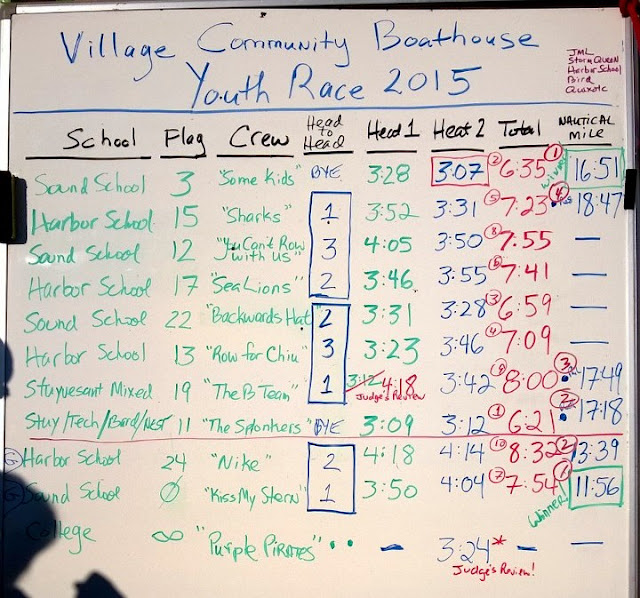 Village Community Boathouse
Youth Race 2015
JML
Storm Queen
Harbor School
Bird
Quixote
School Flag Crew Head to Head Heat 1 Heat 2 Total NAUTICAL MILE
Sound School 3 "Some Kids" BYE 3:28 3:07 ② 6:35 ① winner! 16:51
Harbor School 15 "Sharks" 1 3:52 3:31 ⑤ 7:23 ④ 18:47
Sound School 12 "You Can't Row with us" 3 4:05 3:50 ⑧ 7:55 —
Harbor School 17 "Sea Lions" 2 3:46 3:55 ⑥ 7:41 —
Sound School 22 "Backwards Hat" 2 3:31 3:28 ③ 6:59 —
Harbor School 13 "Row for Chiu" 3 3:23 3:46 ④ 7:09 —
Stuyvesant Mixed 19 "The B Team" 1 3:12 4:18 Judge's Review 3:42 ⑨ 8:00 ③ 17:49
Stuy/Tech/Bard/Nest 11 "The Splonkers" BYE 3:09 3:12 ① 6:21 ② 17:18
G Harbor School 24 "Nike" 2 4:18 4:14 ⑩ 8:32 ② 13:39
G Sound School Ø "Kiss My Stern" 1 3:50 4:04 ⑦ 7:54 ① winner! 11:56
College ∞ "Purple Pirates" •• — 3:24* — —
Judge's Review!